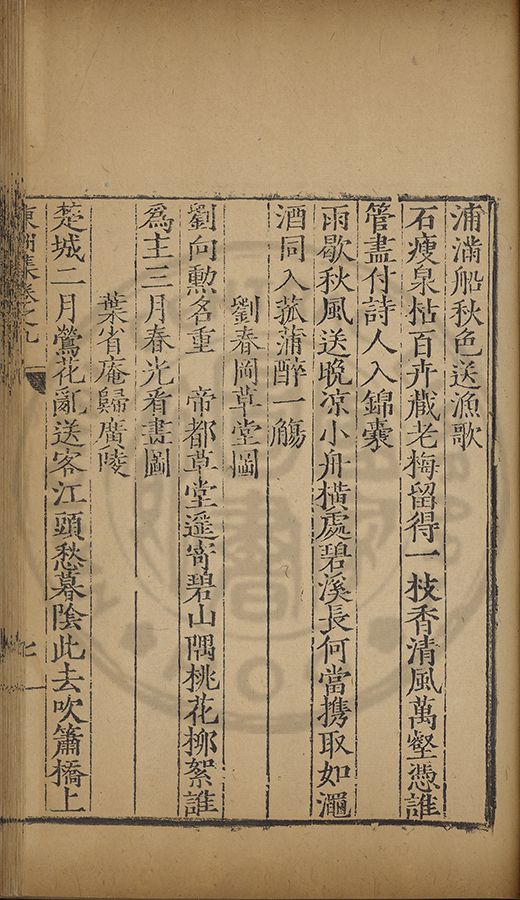 浦滿船秋色送漁歌
石瘦泉枯百卉戕老梅留得一枝香清風萬壑憑誰
管盡付詩人入錦囊
雨歇秋風送晚凉小舟橫處碧溪長何當携取如澠
酒同入菰蒲醉一觴
劉春岡草堂圖
劉向勲名重 帝都草堂遥寄碧山隅桃花栁絮誰
爲主三月春光看畫圖
葉省庵歸廣陵
楚城二月鶯花亂送客江頭愁暮陰此去吹簫橋上
東湖集卷之九
七